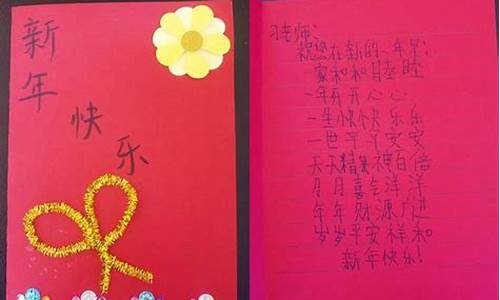 新年快乐
习老师:
祝您在新的一年里:
一家和和睦睦
一年开开心心
一生快快乐乐
一世平平安安
天天精神百倍
月月喜气洋洋
年年财源广进
岁岁平安祥和
新年快乐!